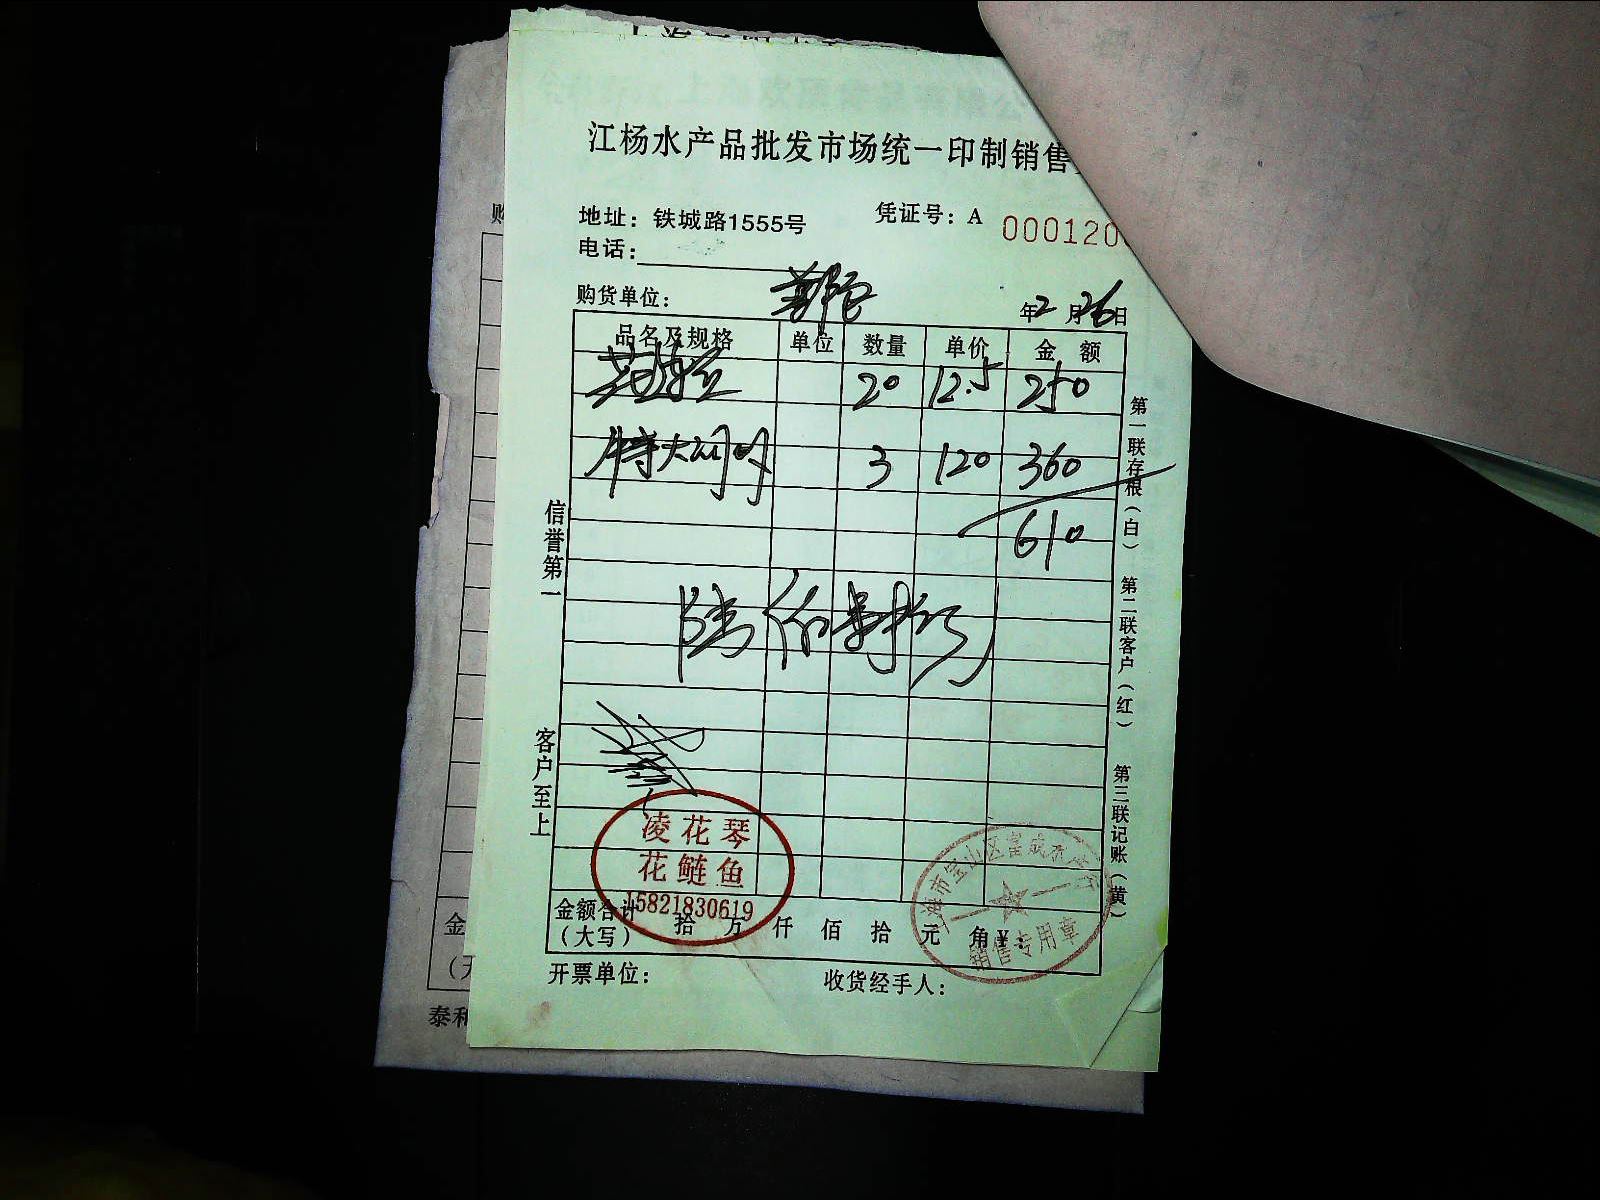 江杨水产品批发市场统一印制销售
地址：铁城路1555号
凭证号：A 000120
电话：
购货单位：
年2月26日
品名及规格 单位 数量 单价 金额
20 12.5 250
特大 3 120 360
610
陆佰壹拾元
信誉第一
客户至上
第一联存根（白）
第二联客户（红）
第三联记账（黄）
凌花琴
花鲢鱼
15821830619
上海市宝山区
销售专用章
金额合计（大写） 拾 万 仟 佰 拾 元 角 ¥：
开票单位：
收货经手人：
购
金
泰和